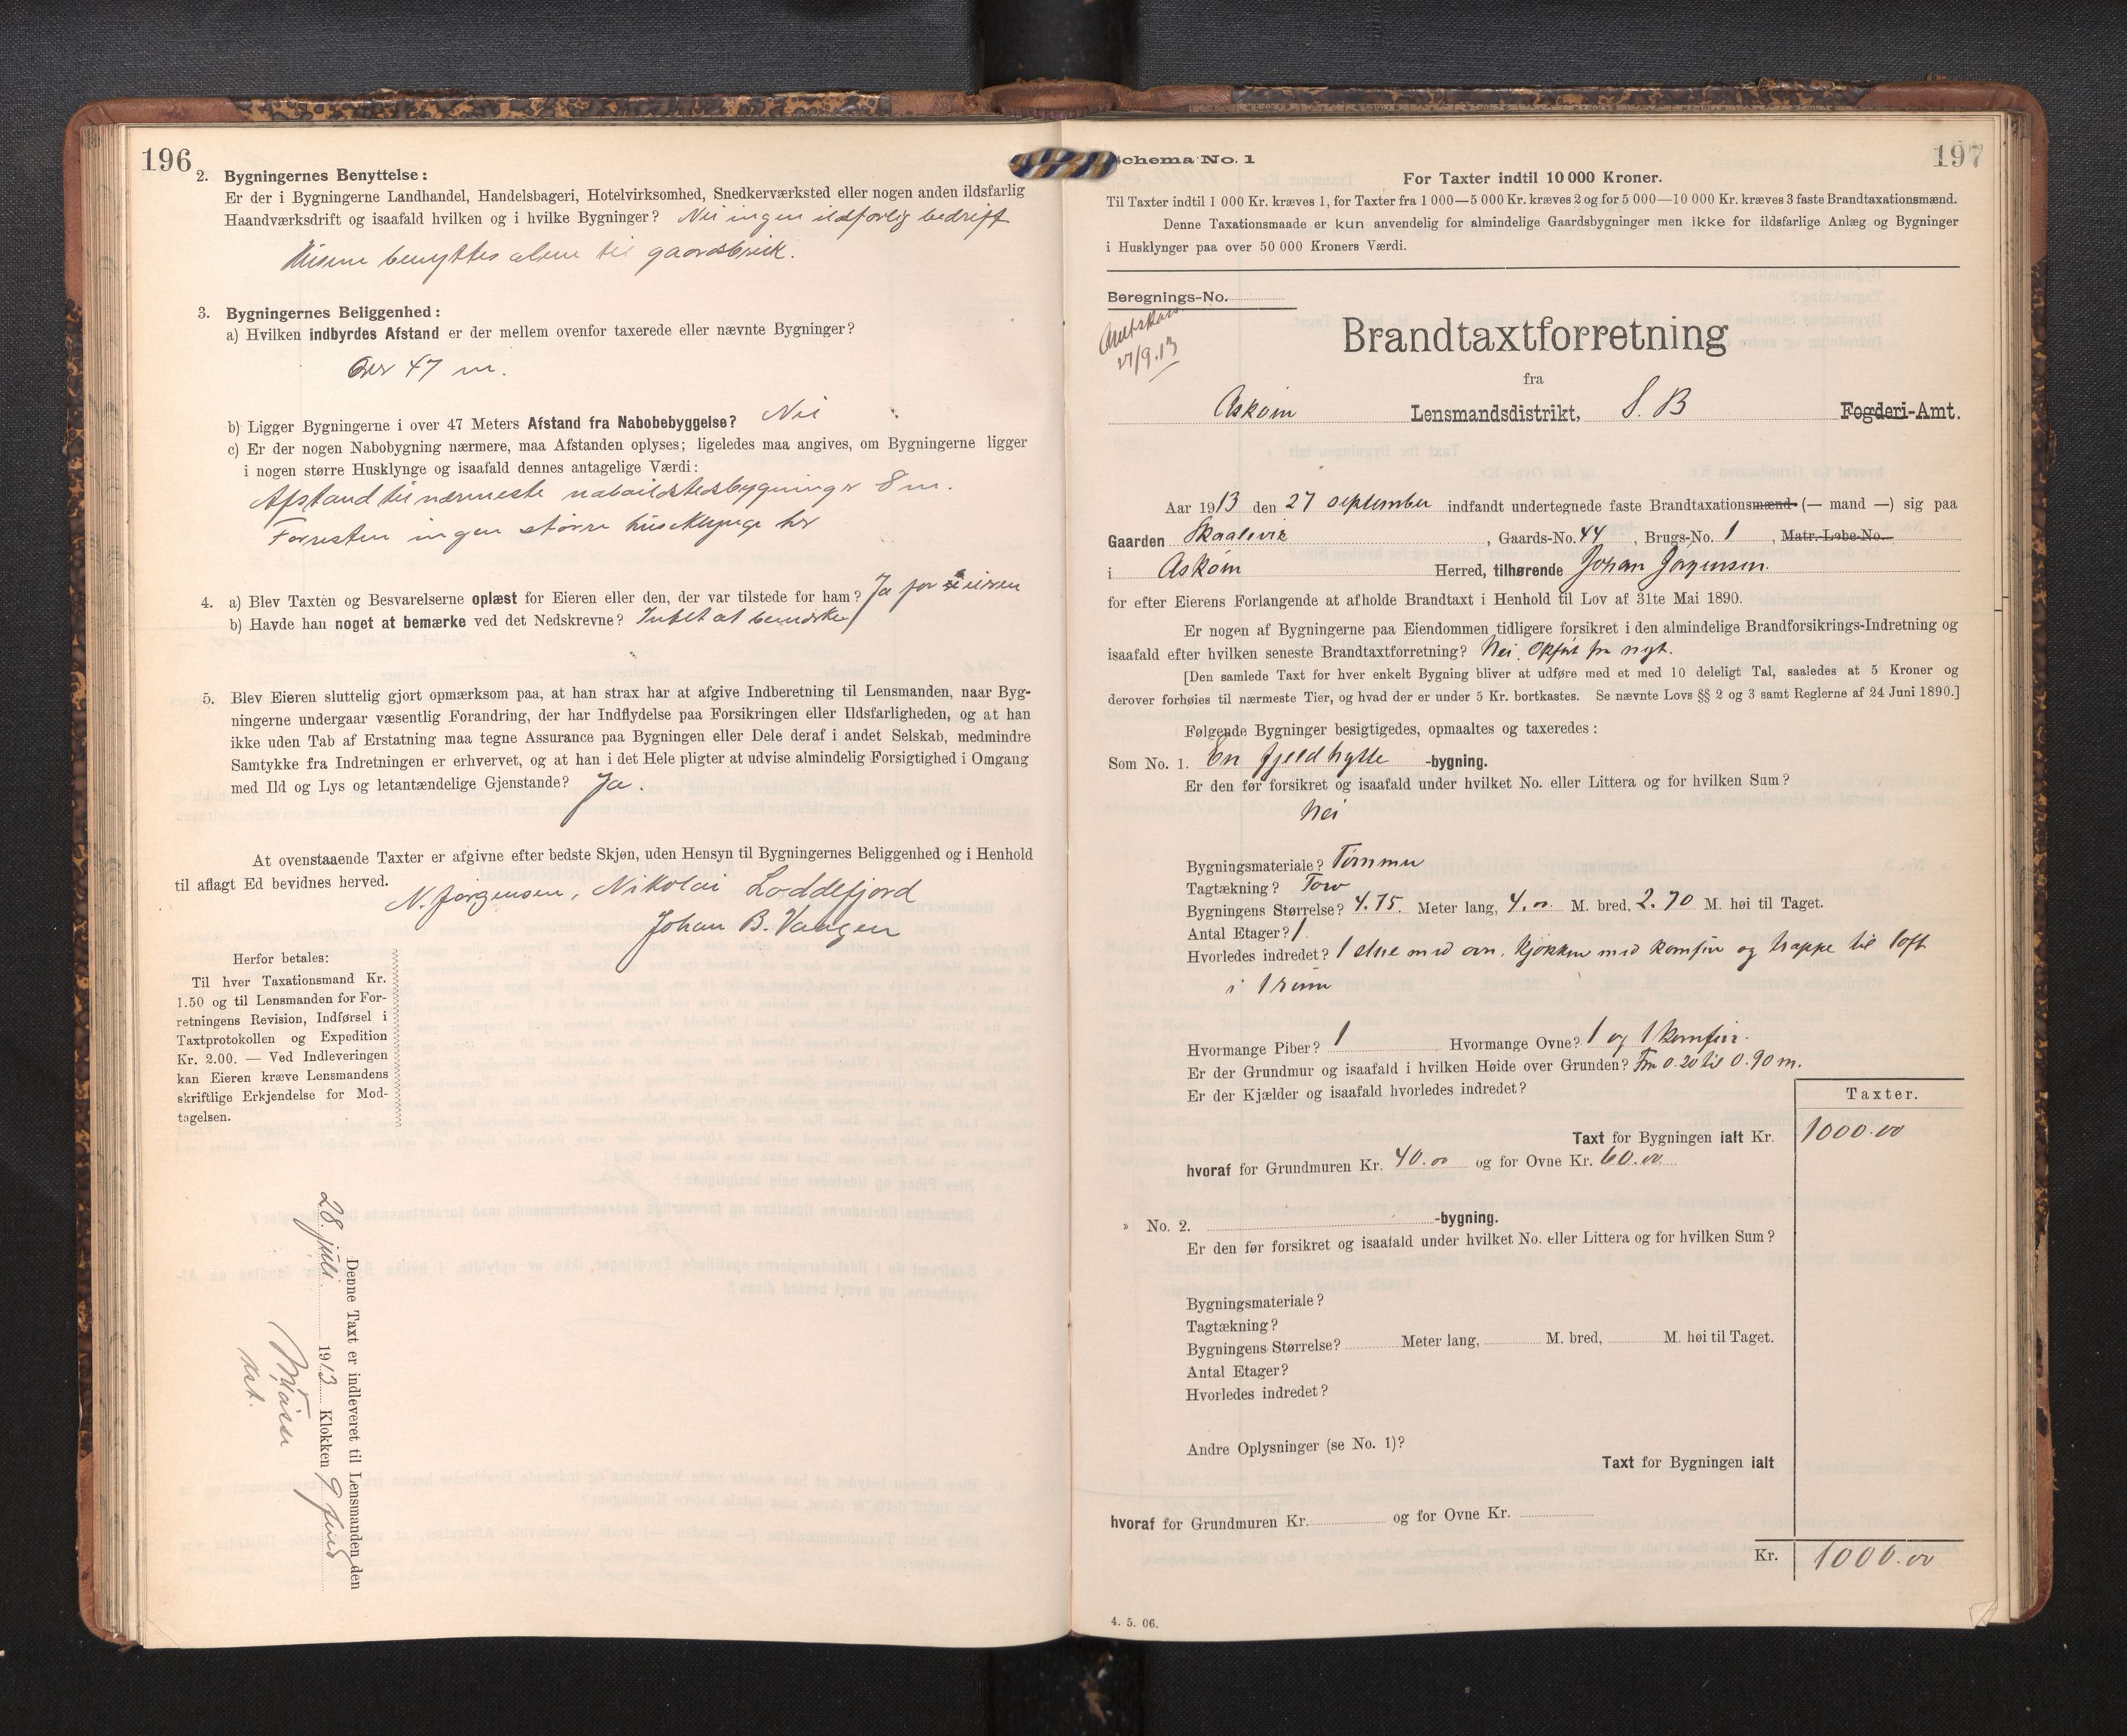 196
2. Bygningernes Benyttelse:
Er der i Bygningerne Landhandel, Handelsbageri, Hotelvirksomhed, Snedkerværksted eller nogen anden ildsfarlig
Haandværksdrift og isaafald hvilken og i hvilke Bygninger? Nei ingen ildsfarlig bedrift
Husene benyttes alene til gaardsbruk.
3. Bygningernes Beliggenhed:
a) Hvilken indbyrdes Afstand er der mellem ovenfor taxerede eller nævnte Bygninger?
Over 47 m.
b) Ligger Bygningerne i over 47 Meters Afstand fra Nabobebyggelse? Nei
c) Er der nogen Nabobygning nærmere, maa Afstanden oplyses; ligeledes maa angives, om Bygningerne ligger
i nogen større Husklynge og isaafald dennes antagelige Værdi:
Afstand til nærmeste naboildstedsbygning er 8 m.
Forresten ingen større husklynge her
4. a) Blev Taxten og Besvarelserne oplæst for Eieren eller den, der var tilstede for ham? Ja for eieren
b) Havde han noget at bemærke ved det Nedskrevne? Intet at bemærke
5. Blev Eieren sluttelig gjort opmærksom paa, at han strax har at afgive Indberetning til Lensmanden, naar Byg-
ningerne undergaar væsentlig Forandring, der har Indflydelse paa Forsikringen eller Ildsfarligheden, og at han
ikke uden Tab af Erstatning maa tegne Assurance paa Bygningen eller Dele deraf i andet Selskab, medmindre
Samtykke fra Indretningen er erhvervet, og at han i det Hele pligter at udvise almindelig Forsigtighed i Omgang
med Ild og Lys og letantændelige Gjenstande? Ja.
At ovenstaaende Taxter er afgivne efter bedste Skjøn, uden Hensyn til Bygningernes Beliggenhed og i Henhold
til aflagt Ed bevidnes herved.
N. Jørgensen, Nikolai Loddefjord
Johan B. Vangen
Herfor betales:
Til hver Taxationsmand Kr.
1.50 og til Lensmanden for For-
retningens Revision, Indførsel i
Taxtprotokollen og Expedition
Kr. 2.00. — Ved Indleveringen
kan Eieren kræve Lensmandens
skriftlige Erkjendelse for Mod-
tagelsen.
Denne Taxt er indleveret til Lensmanden den
28. juli 1913 Klokken 9 fmd
197
Schema No. 1
For Taxter indtil 10 000 Kroner.
Til Taxter indtil 1 000 Kr. kræves 1, for Taxter fra 1 000—5 000 Kr. kræves 2 og for 5 000—10 000 Kr. kræves 3 faste Brandtaxationsmænd.
Denne Taxationsmaade er kun anvendelig for almindelige Gaardsbygninger men ikke for ildsfarlige Anlæg og Bygninger
i Husklynger paa over 50 000 Kroners Værdi.
Beregnings-No.
27/9.13
Brandtaxtforretning
fra
Askøin Lensmandsdistrikt, S. B Fogderi-Amt.
Aar 1913 den 27 september indfandt undertegnede faste Brandtaxationsmænd (— mand —) sig paa
Gaarden Skaalevik, Gaards-No. 44, Brugs-No. 1, Matr.-Løbe-No.
i Askøin Herred, tilhørende Johan Jørgensen.
for efter Eierens Forlangende at afholde Brandtaxt i Henhold til Lov af 31te Mai 1890.
Er nogen af Bygningerne paa Eiendommen tidligere forsikret i den almindelige Brandforsikrings-Indretning og
isaafald efter hvilken seneste Brandtaxtforretning? Nei. Opført fra nyt.
[Den samlede Taxt for hver enkelt Bygning bliver at udføre med et med 10 deleligt Tal, saaledes at 5 Kroner og
derover forhøies til nærmeste Tier, og hvad der er under 5 Kr. bortkastes. Se nævnte Lovs §§ 2 og 3 samt Reglerne af 24 Juni 1890.]
Følgende Bygninger besigtigedes, opmaaltes og taxeredes:
Som No. 1. En fjeldhytte -bygning.
Er den før forsikret og isaafald under hvilket No. eller Littera og for hvilken Sum?
Nei
Bygningsmateriale? Tømmer
Tagtækning? Torv
Bygningens Størrelse? 4.75. Meter lang, 4.00 M. bred, 2.70 M. høi til Taget.
Antal Etager? 1.
Hvorledes indredet? 1 stue med ovn, kjøkken med komfur og trappe til loft
i 1 rum
Hvormange Piber? 1 Hvormange Ovne? 1 og 1 komfur.
Er der Grundmur og isaafald i hvilken Høide over Grunden? Fra 0.20 til 0.90 m.
Er der Kjælder og isaafald hvorledes indredet?
Taxter.
Taxt for Bygningen ialt Kr. 1000.00
hvoraf for Grundmuren Kr. 40.00 og for Ovne Kr. 60.00
» No. 2. -bygning.
Er den før forsikret og isaafald under hvilket No. eller Littera og for hvilken Sum?
Bygningsmateriale?
Tagtækning?
Bygningens Størrelse? Meter lang, M. bred, M. høi til Taget.
Antal Etager?
Hvorledes indredet?
Andre Oplysninger (se No. 1)?
Taxt for Bygningen ialt
hvoraf for Grundmuren Kr. og for Ovne Kr.
Kr. 1000.00
4. 5. 06.